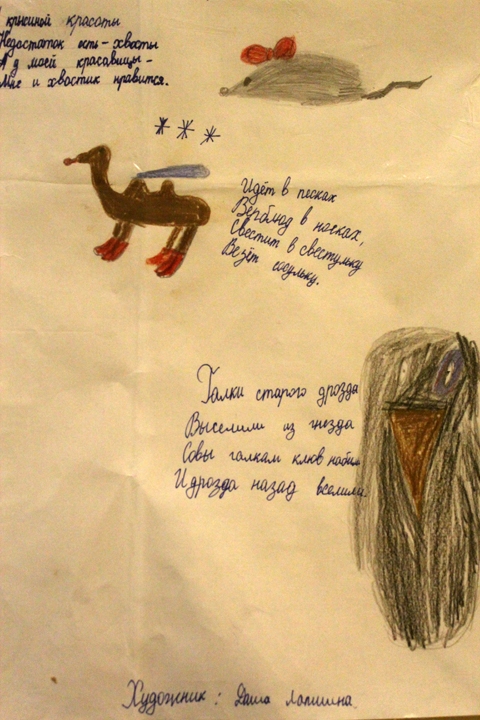 крысиной красоты
Недостаток есть - хвосты
А у моей красавицы -
Мне и хвостик нравится.
***
Идёт в песках
Верблюд в носках,
Свестит в свестульку
Везёт сосульку.
Галки старого дрозда
Выселили из гнезда
Совы галкам клюв набили
И дрозда назад вселили.
Художник: Даша Лапшина